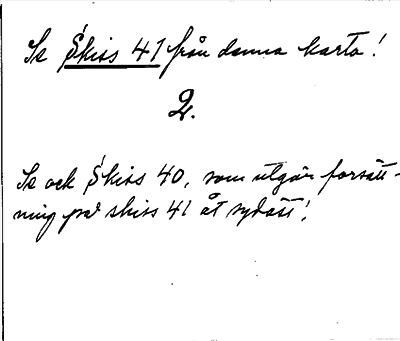 Se Skiss 41 från denna karta!
2.
Se och Skiss 40, som utgör forsätt-
ning på skiss 41 åt sydöst!